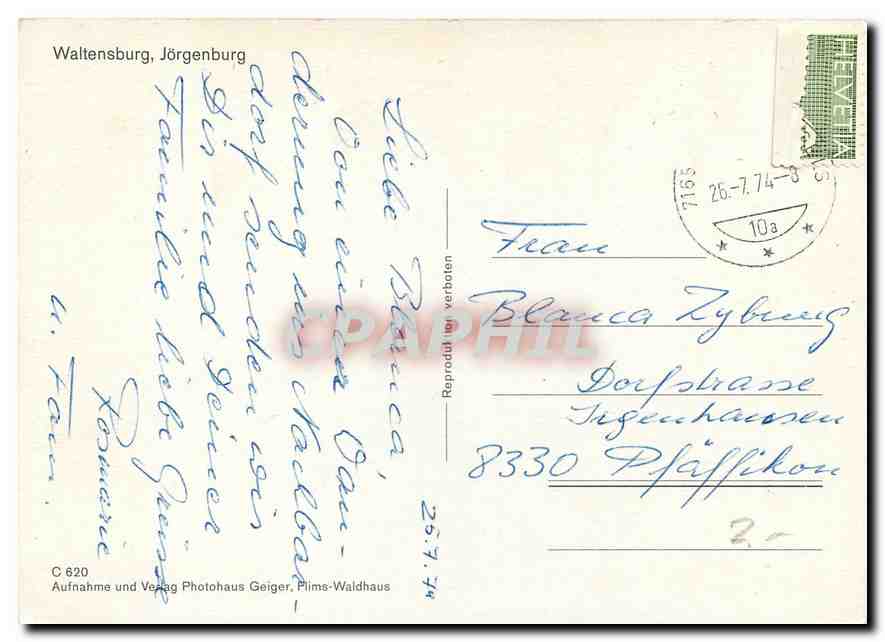 Waltensburg, Jörgenburg
25.7.74
Liebe Blanca,
Von einer Wan-
derung ins Nachbar-
dorf senden wir
Dir und Deiner
Familie liebe Grüsse
Rosmarie
u. Fam.
C 620
Aufnahme und Verlag Photohaus Geiger, Flims-Waldhaus
Reproduktion verboten
HELVETIA
7165
26.-7.74-8
10a
Frau
Blanca Zyburg
Dorfstrasse
Irgenhausen
8330 Pfäffikon
2.-
CPAPHIL